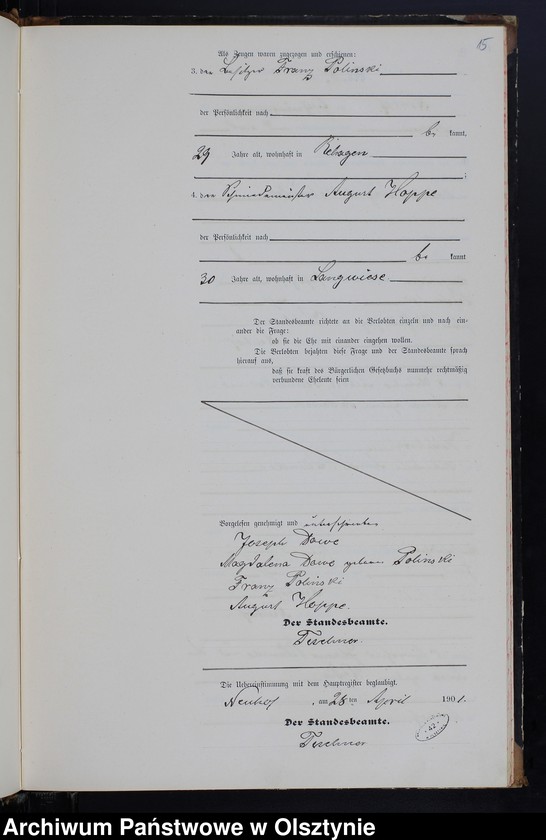 15
Als Zeugen waren zugezogen und erschienen:
3. der Besitzer Franz Polinski
der Persönlichkeit nach
be kannt.
29 Jahre alt, wohnhaft in Rehagen
;
4. der Schmiedemeister August Hoppe
der Persönlichkeit nach
be kannt
30 Jahre alt, wohnhaft in Langwiese
Der Standesbeamte richtete an die Verlobten einzeln und nach ein-
ander die Frage:
ob sie die Ehe mit einander eingehen wollen.
Die Verlobten bejahten diese Frage und der Standesbeamte sprach
hierauf aus,
daß sie kraft des Bürgerlichen Gesetzbuchs nunmehr rechtmäßig
verbundene Eheleute seien
Vorgelesen genehmigt und unterschrieben
Joseph Dowe
Magdalena Dowe geborene Polinski
Franz Polinski
August Hoppe.
Der Standesbeamte.
Teschner
Die Uebereinstimmung mit dem Hauptregister beglaubigt.
Neuhof, am 28 ten April 1901.
Der Standesbeamte.
Teschner
42
Archiwum Państwowe w Olsztynie